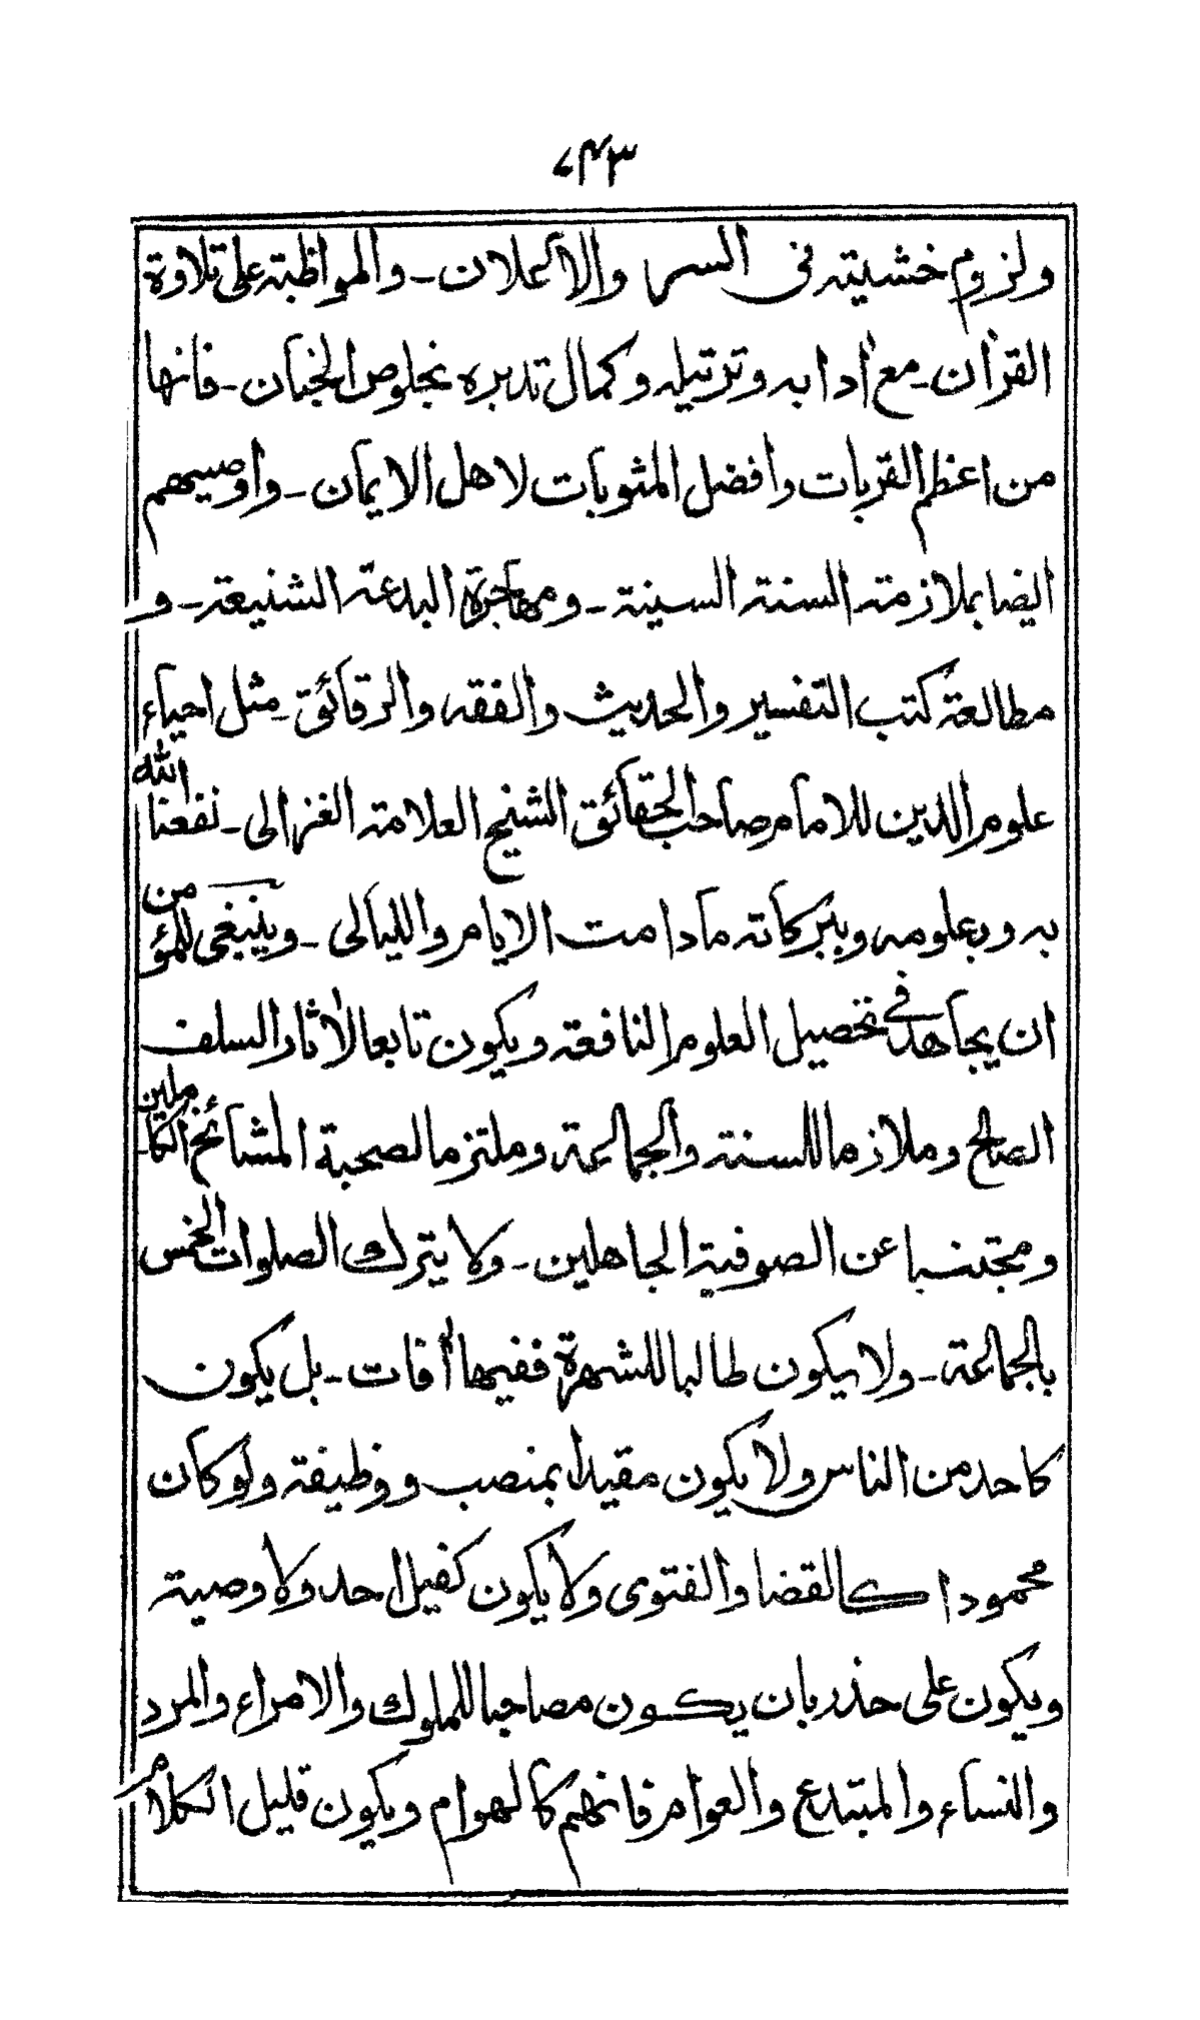 ٧٤٣
ولزوم خشيته فى السر والاعلان ـ والمواظبة على تلاوة
القرأن ـ مع أدابه وترتيله وكمال تدبره بخلوص الجنان ـ فانها
من اعظم القربات وافضل المثوبات لاهل الايمان ـ واوصيهم
ايضا بملازمة السنة السنية ـ ومهاجرة البدعة الشنيعة ـ و
مطالعة كتب التفسير والحديث والفقه والرقائق ـ مثل احياء
علوم الدين للامام صاحب الحقائق الشيخ العلامة الغزالى ـ نفعنا الله
به وبعلومه وببركاته مادامت الايام والليالى ـ وينبغى للمؤمن
ان يجاهد فى تحصيل العلوم النافعة ويكون تابعا لأثار السلف
الصالح وملازما للسنة والجماعة وملتزما لصحبة المشائخ الكاملين
ومجتنبا عن الصوفية الجاهلين ـ ولا يترك الصلوات الخمس
بالجماعة ـ ولا يكون طالبا للشهرة ففيها أفات ـ بل يكون
كاحد من الناس ولا يكون مقيدا بمنصب ووظيفة ولو كان
محمودا كالقضا والفتوى ولا يكون كفيل احد ولا وصية
ويكون على حذر بان يكون مصاحبا للملوك والامراء والمرد
والنساء والمبتدع والعوام فانهم كالهوام ويكون قليل الكلام